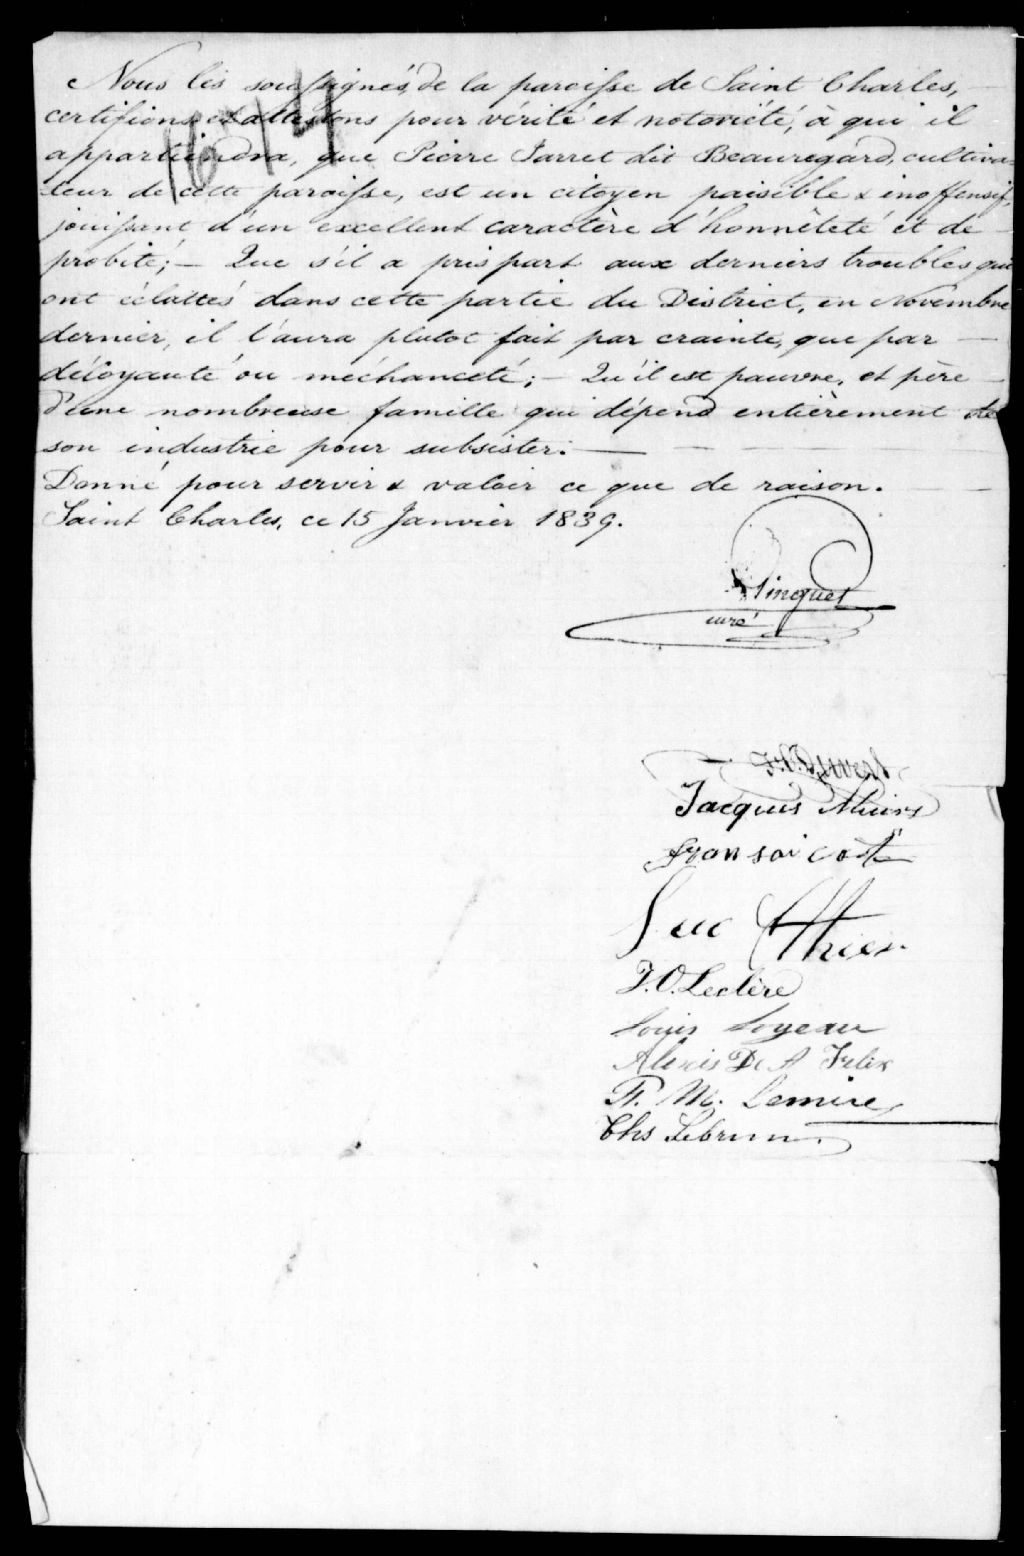 Nous les soussignés, de la paroisse de Saint Charles,
certifions et attestons pour vérité et notoriété, à qui il
appartiendra, que Pierre Jarret dit Beauregard, cultiva-
-teur de cette paroisse, est un citoyen paisible & inoffensif,
jouissant d'un excellent caractère d'honnêteté et de
probité; — Que s'il a pris part aux derniers troubles qui
ont éclattés dans cette partie du District, en Novembre
dernier, il l'aura plutot fait par crainte, que par —
déloyauté ou méchanceté; — Qu'il est pauvre, et père
d'une nombreuse famille qui dépend entièrement de
son industrie pour subsister. —
Donné pour servir & valoir ce que de raison.
Saint Charles, ce 15 Janvier 1839.
1614
Pinguet
curé
Jacques
fransoi coté
Luc Ethier
J. O. Leclère
Louis Loyeau
Alexis D. A Felix
P. M. Lemire
Chs Lebrun